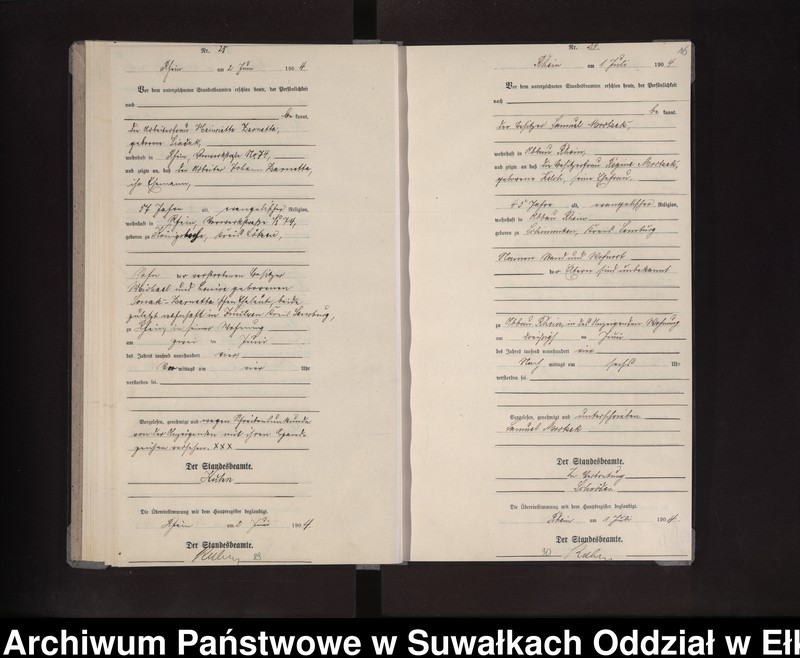 Nr. 28.
Rhein am 2 Juni 1904.
Vor dem unterzeichneten Standesbeamten erschien heute, der Persönlichkeit
nach
be kannt,
die Arbeiterfrau Henriette Czarnetta,
geborene
wohnhaft in Rhein, Vorwerkstraße No 74,
und zeigte an, daß der Arbeiter Johann Czarnetta,
ihr Ehemann,
57 Jahre alt, evangelischer Religion,
wohnhaft in Rhein, Vorwerkstraße No 74,
geboren zu Kreis Lötzen,
Sohn der verstorbenen Besitzer
Michael und Louise geborenen
Czarnetta'schen Eheleute, beide
zuletzt wohnhaft in Kreis Sensburg,
zu Rhein in seiner Wohnung
am zwei ten Juni
des Jahres tausend neunhundert vier
Vor mittags um vier Uhr
verstorben sei.
Vorgelesen, genehmigt und wegen Schreibensunkunde
von der Anzeigenden mit ihren Hand-
zeichen versehen. XXX
Der Standesbeamte.
Kuhn
Die Übereinstimmung mit dem Hauptregister beglaubigt.
Rhein am 2 Juni 1904.
Der Standesbeamte.
Kuhn
Nr. 29.
Rhein am 1 Juli 1904.
Vor dem unterzeichneten Standesbeamten erschien heute, der Persönlichkeit
nach
be kannt,
der Besitzer Samuel Mostzek,
wohnhaft in Abbau Rhein,
und zeigte an, daß die Besitzerfrau Regine Mostzek,
geborene seine Ehefrau,
45 Jahre alt, evangelischer Religion,
wohnhaft in Abbau Rhein
geboren zu Kreis Sensburg
Namen Stand und Wohnort
der Eltern sind unbekannt
zu Abbau Rhein, in des Anzeigenden Wohnung
am dreißigsten Juni
des Jahres tausend neunhundert vier
Nach mittags um sechs Uhr
verstorben sei.
Vorgelesen, genehmigt und unterschrieben
Samuel Mostzek
Der Standesbeamte.
In Vertretung
Schröder
Die Übereinstimmung mit dem Hauptregister beglaubigt.
Rhein am 1 Juli 1904.
Der Standesbeamte.
Kuhn
Archiwum Państwowe w Suwałkach Oddział w Ełk